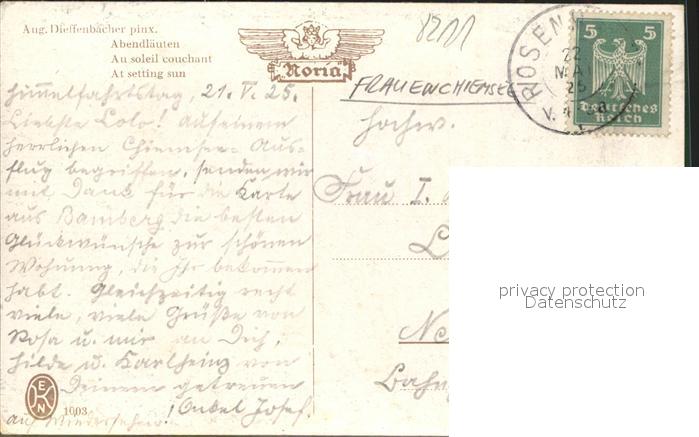 Aug. Dieffenbacher pinx.
Abendläuten
Au soleil couchant
At setting sun
Noria
8211
FRAUENCHIEMSEE
ROSENH
22
MAI
25
V.
5 5
Deutsches
Reich
Himmelfahrtstag, 21. V. 25.
Liebste Lolo! Auf einem
herrlichen Chiemsee-Aus-
flug begriffen, senden wir
mit Dank für die Karte
aus Bamberg die besten
Glückwünsche zur schönen
Wohnung, die Ihr bekommen
habt. Gleichzeitig recht
viele, viele Grüße von
Rosa u. mir an Dich,
Hilde u. Karlheinz von
Deinem getreuen
Onkel Josef.
auf Wiedersehen!
Hochw.
Frau I.
L
Ne
Bahn
EKN
1003
privacy protection
Datenschutz